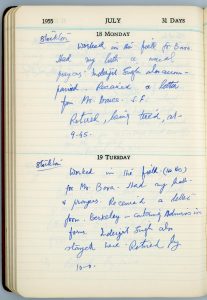 1955 JULY 31 DAYS
18 MONDAY
Stockton
Worked in the field for Bova.
Had my bath & usual
prayers. Inderjit Singh also accom-
panied. Received a letter
from Mr. Bruce. S.F.
Retired, being tired, at
9-45.
19 TUESDAY
Stockton
Worked in the field (10 hrs)
for Mr. Bova. Had my bath
& prayers. Received a letter
from Berkeley - Admission
forms. Inderjit Singh also
stayed here. Retired by
10-0.